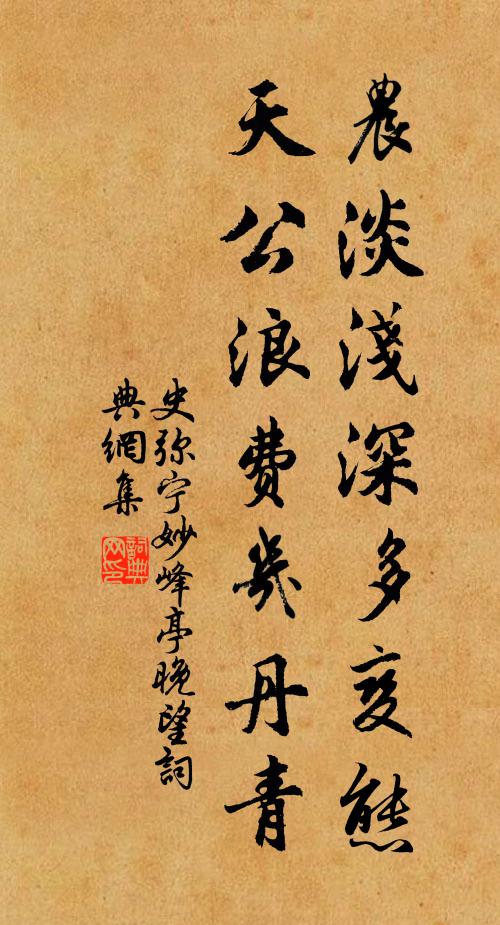 農淡淺深多变態
天公浪費幾丹青
史弥宁妙峰亭晚望詞
典網集
詞典
网印